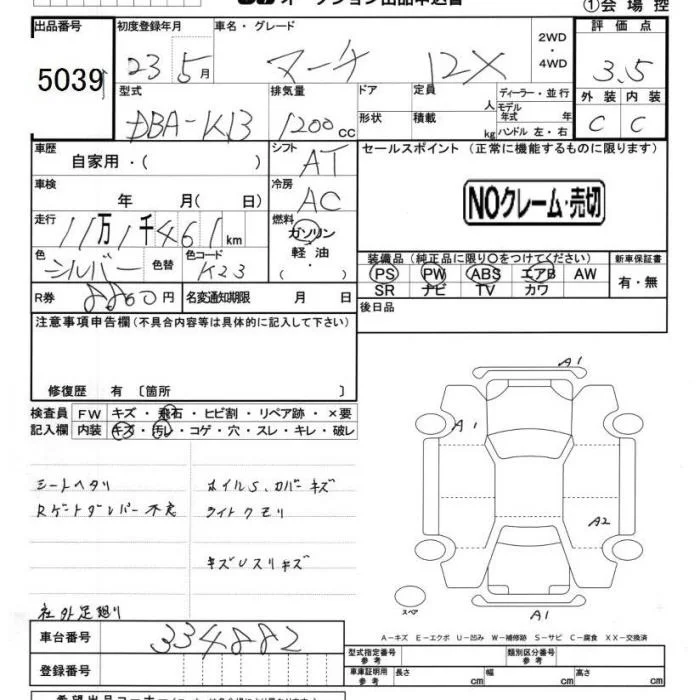 オークション出品申込書
①会場控
出品番号 初度登録年月 車名・グレード 評価点
5039 23年5月 マーチ 12X 2WD・4WD 3.5
型式 排気量 ドア 定員 人 ディーラー・並行 外装 内装
DBA-K13 1200cc 形状 積載 kg モデル年式 年 ハンドル 左・右 C C
車歴 シフト セールスポイント (正常に機能するものに限ります)
自家用・( ) AT
車検 冷房
年 月( 日) AC
NOクレーム・売切
走行 燃料
11万1千461km ガソリン
軽油
・( )
色 色替 色コード
シルバー K23
装備品 (純正品に限り○をつけてください) 新車保証書
PS PW ABS エアB AW 有・無
SR ナビ TV カワ
R券 8860円 名変通知期限 月 日
後日品
注意事項申告欄 (不具合内容等は具体的に記入して下さい)
修復歴 有 〔箇所 〕
検査員 FW キズ・飛石・ヒビ割・リペア跡・×要
記入欄 内装 キズ・汚レ・コゲ・穴・スレ・キレ・破レ
シートヘタリ ホイルS、カバーキズ
Rゲートダンパー不良 ライトクモリ
キズUスリキズ
社外足廻リ
A1
A1
A2
スペア
A1
A-キズ E-エクボ U-凹み W-補修跡 S-サビ C-腐食 XX-交換済
車台番号 334882
登録番号
型式指定番号 参考 類別区分番号 参考
車庫証明用 参考 長さ cm 幅 cm 高さ cm
希望出品コーナー